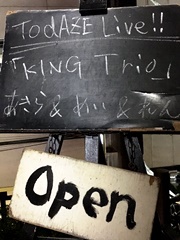 TodAZE Live!!
「KING Trio」
あきら & めい & れん
Open